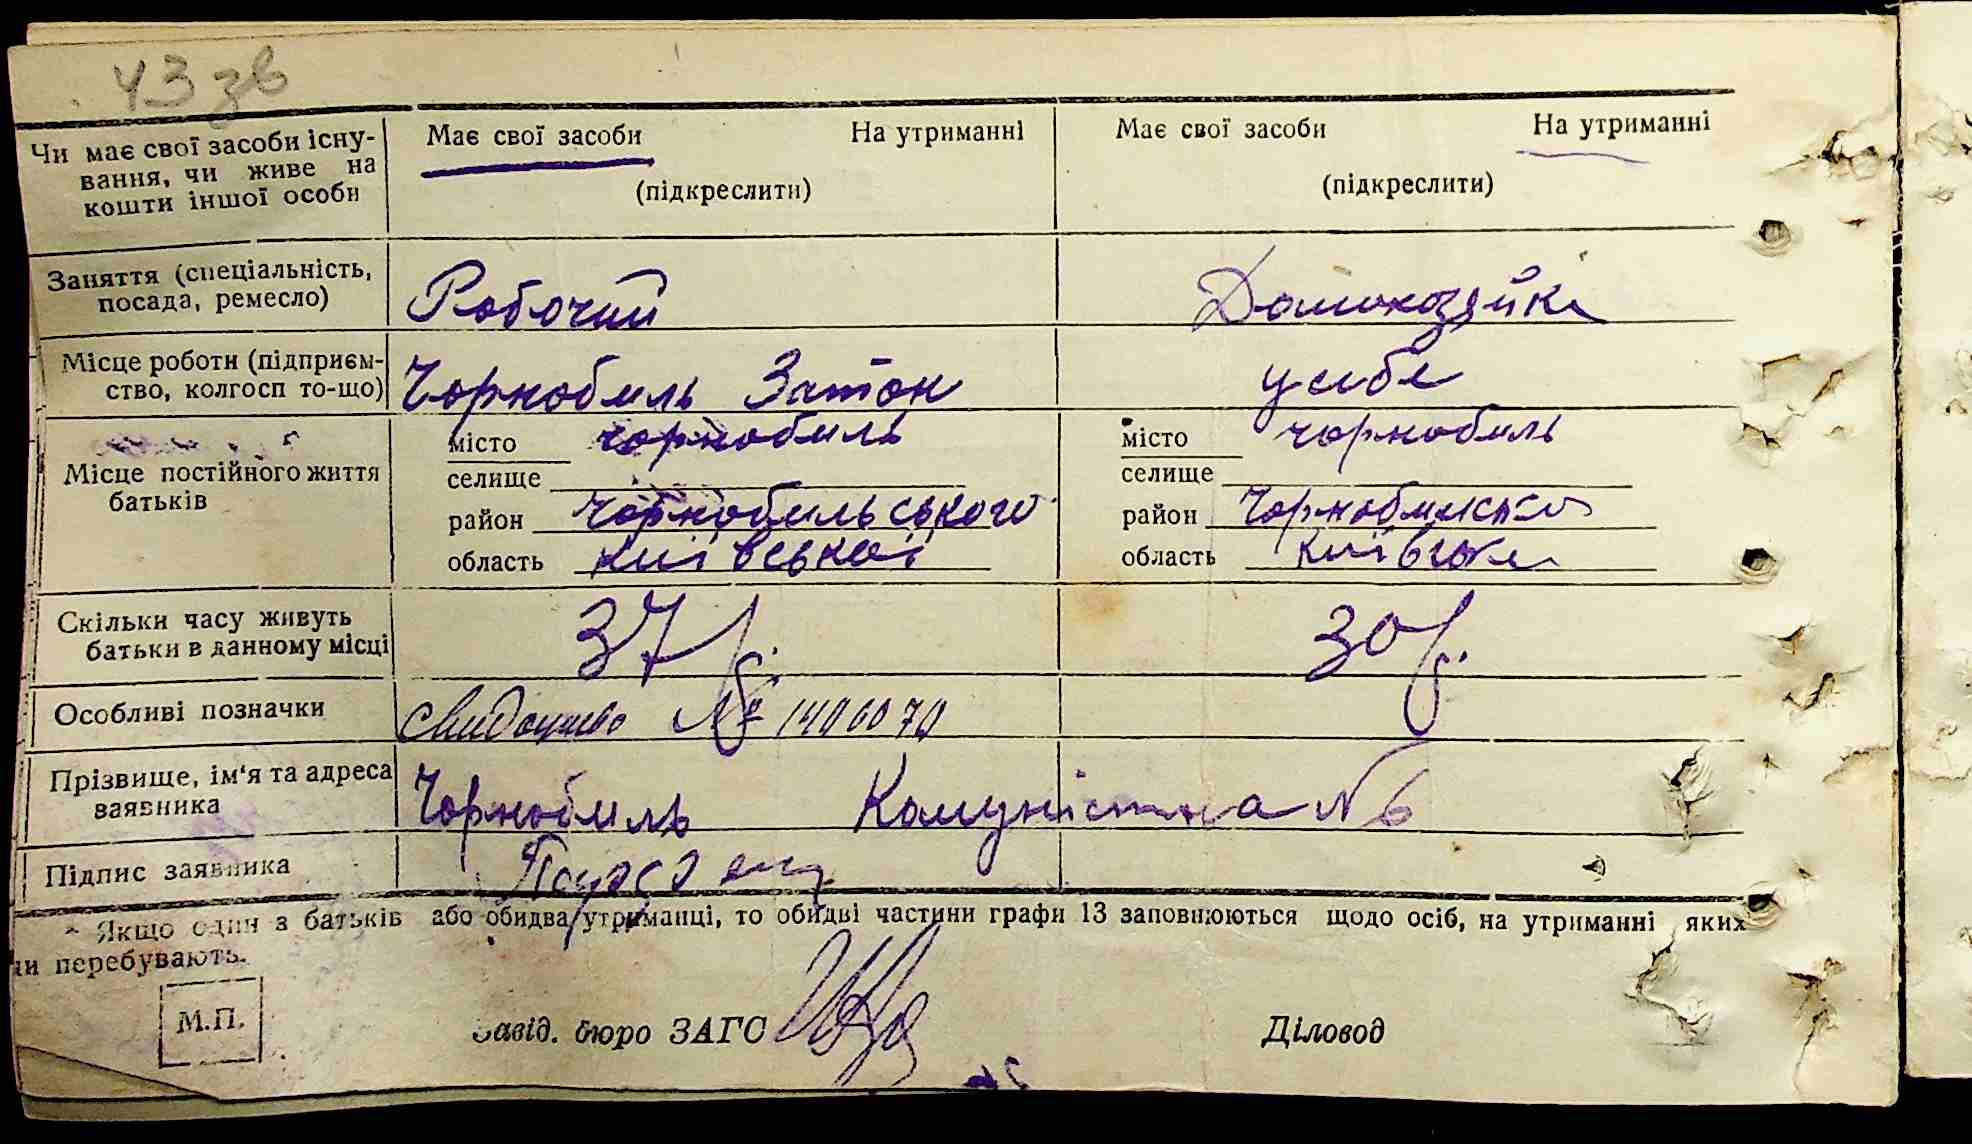 43 зв
Чи має свої засоби існу- Має свої засоби На утриманні Має свої засоби На утриманні
вання, чи живе на
кошти іншої особи (підкреслити) (підкреслити)
Заняття (спеціальність,
посада, ремесло) Робочий Домохозяйка
Місце роботи (підприєм-
ство, колгосп то-що) Чорнобиль Затон у себе
місто чорнобиль місто чорнобиль
Місце постійного життя селище селище
батьків район чорнобильського район Чорнобильсько
область київської область київська
Скільки часу живуть
батьки в данному місці 37 р. 30 р.
Особливі позначки № 1406070
Прізвище, ім'я та адреса
заявника Чорнобиль Комуністична № 6
Підпис заявника
* Якщо один з батьків або обидва утриманці, то обидві частини графи 13 заповнюються щодо осіб, на утриманні яких
перебувають.
М.П.
Завід. бюро ЗАГС Діловод